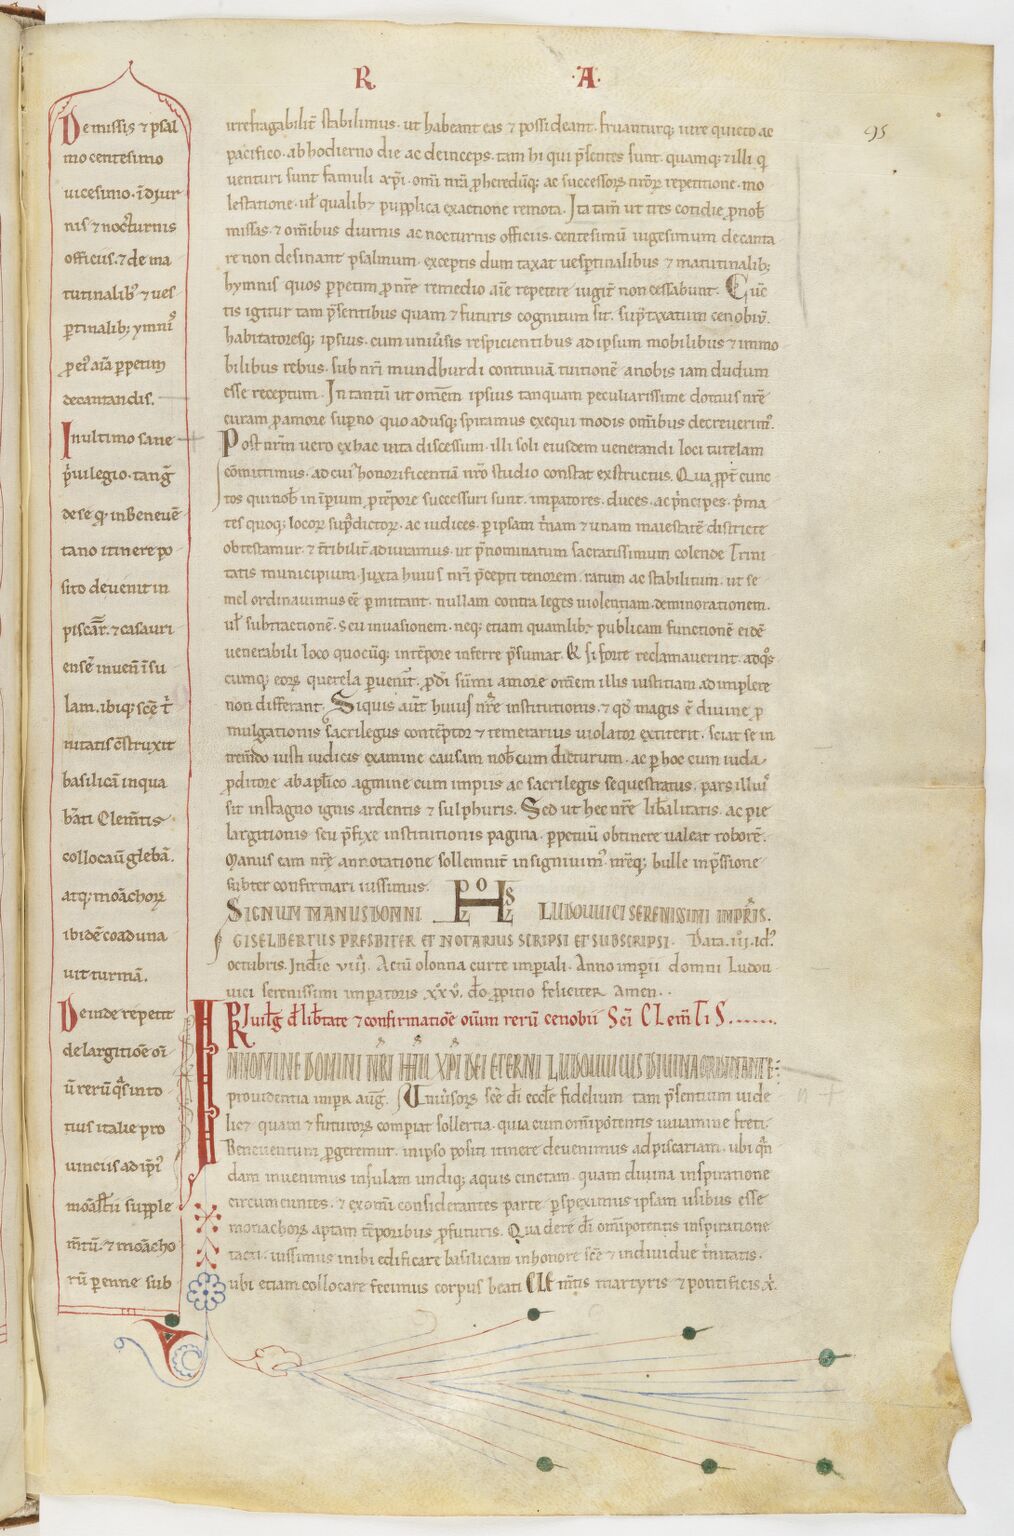 R A
95
De missis ⁊ psal
mo centesimo
vicesimo. ī diur
nis ⁊ nocturnis
officiis. ⁊ de ma
tutinalib; ⁊ ves
ptinalib; ymnis
decantandis.
In ultimo sane
p̄uilegio. tang̃
de se qđ in Beneuē
tano itinere po
sito deuenit in
piscar̄. ⁊ casauri
ensē inuen̄ īsu
lam. ibiq; scē t̄
nitatis c̄struxit
basilicā in qua
b̄ati Clem̄tis
collocau̅ glebā.
atq; monachor̄
ibidē coaduna
uit turmā.
Deinde repetit
de largitiōe oi̅
ū rerū q̄s in to
tius italie pro
uinciis ad ip̄i
monast̄ii supple
m̄tū. ⁊ monacho
rū perenne sub
irrefragabilit̄ stabilimus. ut habeant eas ⁊ possideant. fruanturq; iure quieto ac
pacifico. ab hodierno die ac deinceps. tam hi qui p̄sentes sunt. quamq; ⁊ illi q̄
venturi sunt famuli xp̄i. omī nr̄a p̱heredūq; ac successor̄ nr̄or̄ repetitione. mo
lestatione. uł qualib; pupplica exactione remota. Ita tam̄ ut tres cotidie p̱ nob̄
missas. ⁊ om̄ibus diurnis ac nocturnis officiis. centesimū uigesimum decanta
re non desinant psalmum. exceptis dum taxat uesp̱tinalibus ⁊ matutinalib;
hymnis quos p̱petim p̱ nr̄e remedio aīe repetere iugit̄ non cessabunt. Cūc
tis igitur tam p̄sentibus quam ⁊ futuris cognitum sit. sup̄ taxatum cenobiū.
habitatoresq; ipsius. cum uniūsis respicientibus ad ipsum mobilibus ⁊ immo
bilibus rebus. sub nr̄i mundburdi continuā tuitionē a nobis iam dudum
esse receptum. In tantū ut om̄em ipsius tanquam peculiarissime domus nr̄e
curam p̱ amore sup̱no quo adusq; spiramus exequi modis om̄ibus decreuerim;
Post nr̄m uero ex hac uita discessum. illi soli eiusdem venerandi loci tutelam
cōmittimus. ad cui; honorificentiā nr̄o studio constat exstructus. Qua p̱pt̄ cunc
tos qui nob̄ in ip̱ium p̱ tēpore successuri sunt. imperatores. duces. ac p̄ncipes. p̄ma
tes quoq; locor̄ sup̄dictor̄. ac iudices. p̱ ipsam t̄nam ⁊ unam maiestatē districte
obtestamur. ⁊ t̄ribilit̄ adiuramus. ut p̄nominatum sacratissimum colende Trini
tatis municipium. Juxta huius nr̄i p̄cepti tenorem. ratum ac stabilitum. ut se
mel ordinauimus eē p̱mittant. nullam contra leges uiolentiam. deminorationem.
uł subtractionē. seu inuasionem. neq; etiam quamlib; publicam functionē eidē
venerabili loco quocūq; in tēpore inferre p̄sumat. Et si forte reclamauerint. ad q̄s
cumq; eor̄ querela p̱uen̄it. p̱ dī sūmi amore om̄em illis iustitiam adimplere
non differant. Siquis aūt huius nr̄e institutionis. ⁊ qđ magis ē diuine p̱
mulgationis sacrilegus contēptor ⁊ temerarius uiolator extiterit. sciat se in
trem̄do iusti iudicis examine causam nob̄cum dicturum. ac p̱ hoc cum iuda
p̱ditore ab ap̄lico agmine cum impiis ac sacrilegis sequestratus. pars illiu;
sit in stagno ignis ardentis ⁊ sulphuris. Sed ut hec nr̄e lib̄alitatis. ac pie
largitionis seu p̄fixe institutionis pagina. p̱petuū obtinere ualeat roborē.
Manus eam nr̄e annotatione sollemnit̄ insigniuim; nr̄eq; bulle imp̄ssione
subter confirmari iussimus.
SIGNUM MANUS DOMNI LUDOUUICI SERENISSIMI IMPRIS.
GISELBERTUS PRESBITER ET NOTARIUS SCRIPSI ET SUBSCRIPSI. Data. iii. id;
octubris. Indic̄ viii. Actū olonna curte imperiali. Anno imperii domni Ludou
uici serenissimi imperatoris xxv. do p̱pitio feliciter amen.
PRiuileg̃ đ lib̄tate ⁊ confirmatiōe oīum rerū cenobii Sc̄i CLem̄TiS
IN NOMINE DOMINI NR̄I IHU XPI DEI ETERNI LUDOUUICUS DIUINA ORDINANTE
prouidentia imp̱r aug̃. Uniūsor̄ scē dī eccl̄e fidelium tam p̄sentium uide
lic; quam ⁊ futuror̄ comperiat sollertia. quia cum om̄ipotentis iuuamine freti.
Beneuentum p̱geremur. in ipso positi itinere deuenimus ad piscariam. ubi q̄n
dam inuenimus insulam undiq; aquis cinctam. quam diuina inspiratione
circumeuntes. ⁊ ex omī considerantes parte p̱speximus ipsam usibus esse
monachor̄ aptam tēporibus p̱futuris. Qua de re dī om̄ipotentis inspiratione
tacti. iussimus inibi edificare basilicam in honore scē ⁊ indiuidue t̄nitatis.
ubi etiam collocare fecimus corpus beati CLEm̄tis martyris ⁊ pontificis x̄.